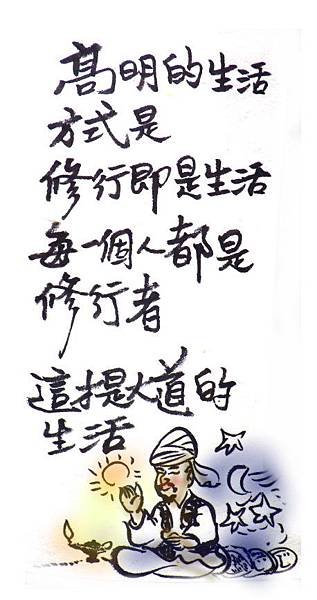 高明的生活
方式是
修行即是生活
每一個人都是
修行者
這才是大道的
生活